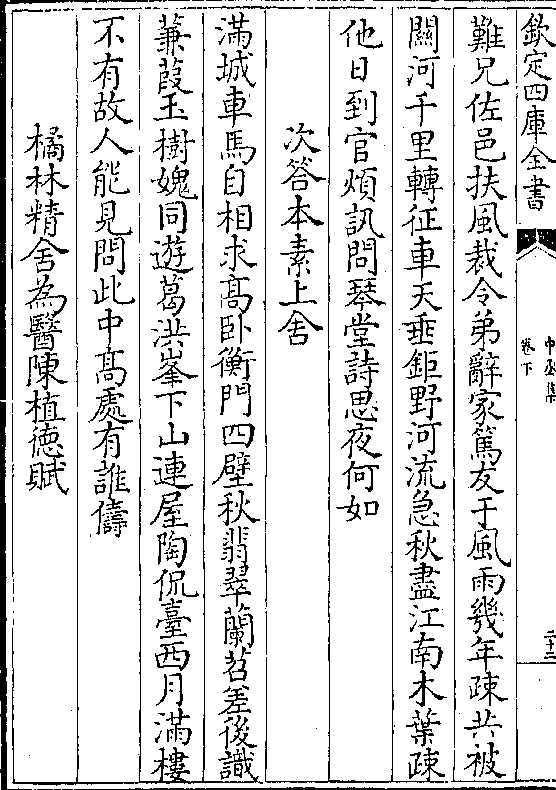 欽定四庫全書
中丞集
卷下
二十二
難兄佐邑扶風裁令弟辭家篤友于風雨幾年疎共被
關河千里轉征車天垂鉅野河流急秋盡江南木葉疎
他日到官煩訊問琴堂詩思夜何如
次答本素上舍
滿城車馬自相求髙卧衡門四壁秋翡翠蘭苕差後識
蒹葭玉樹媿同遊葛洪峯下山連屋陶侃臺西月滿樓
不有故人能見問此中髙處有誰儔
橘林精舍為醫陳植徳賦